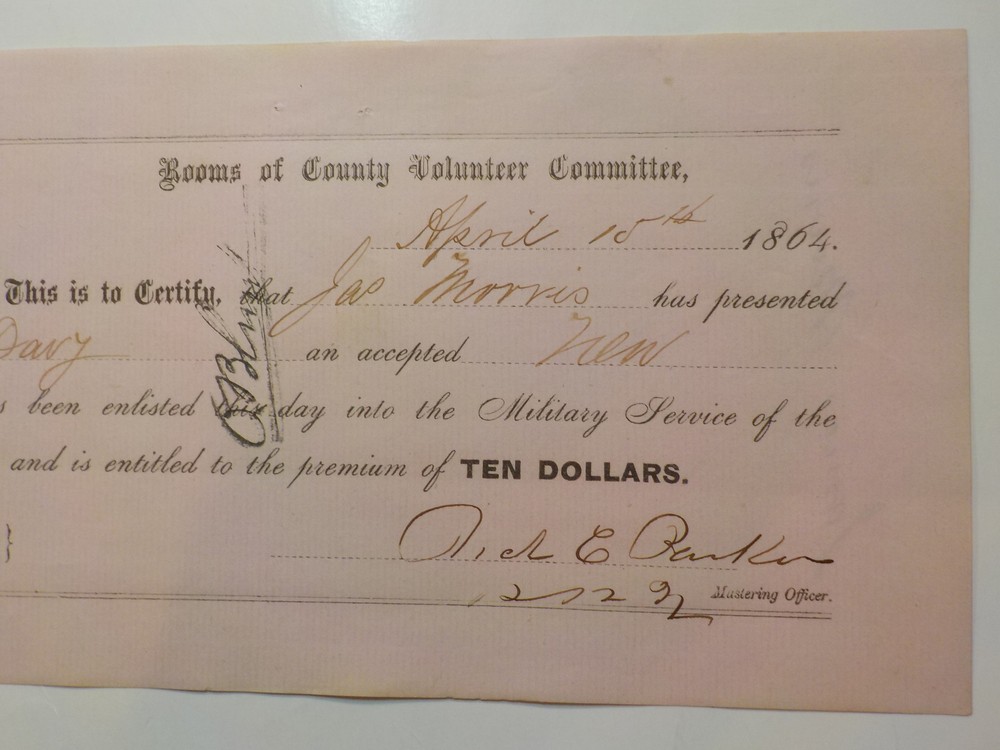 Rooms of County Volunteer Committee,
April 15th 1864.
This is to Certify, that Jas Morris has presented
Davy an accepted New
s been enlisted this day into the Military Service of the
and is entitled to the premium of TEN DOLLARS.
E Parker
Mustering Officer.